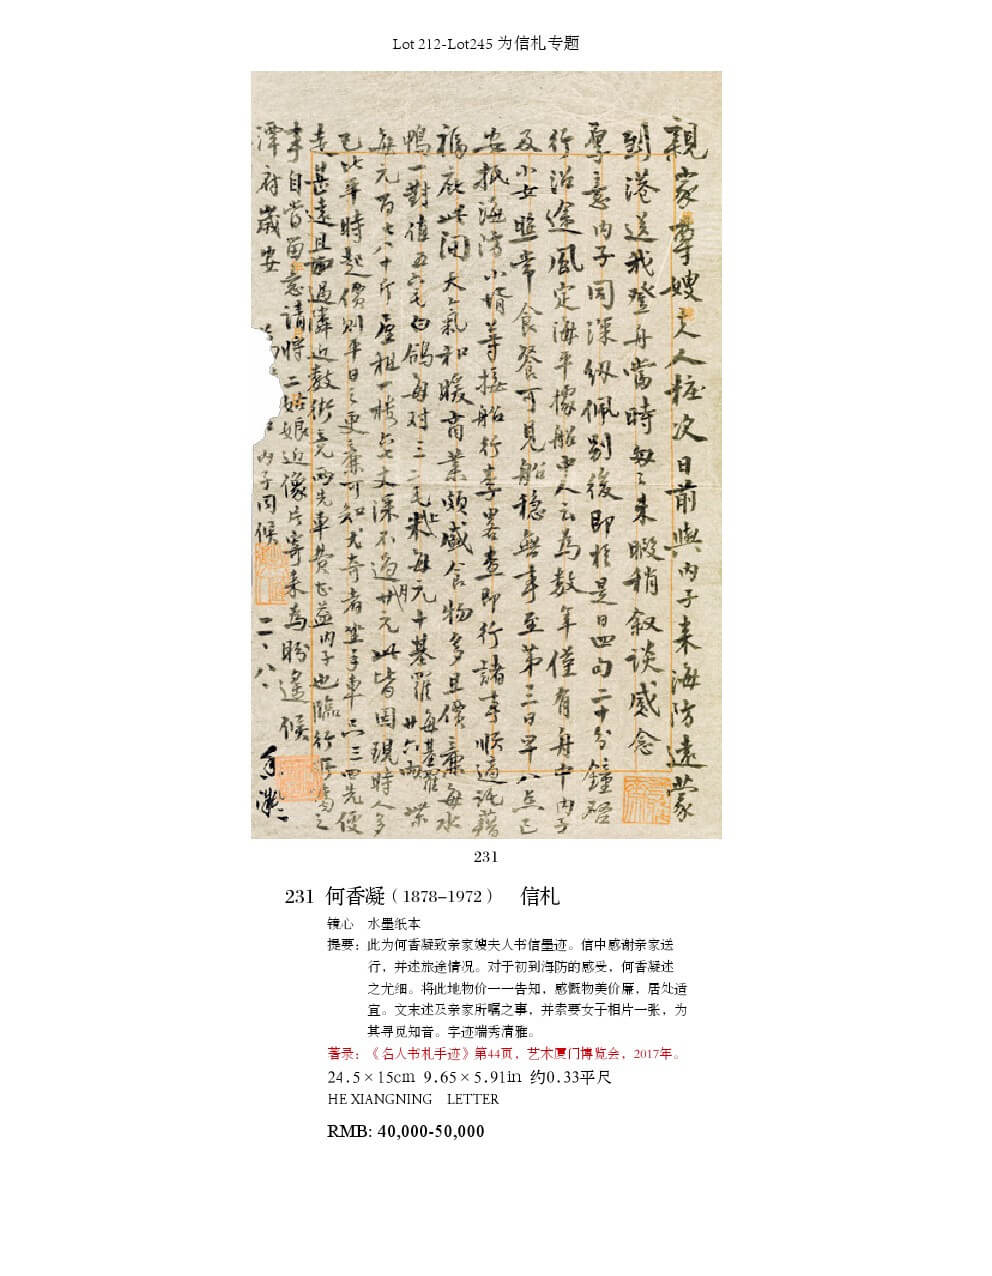 Lot 212-Lot245 为信札专题
親家摯嫂夫人粧次日前與內子来海防遠蒙
到港送我登舟當時匆々未暇稍叙談感念
摯意内子同深紉佩别後即於是日四句二十分鐘啓
行沿途風定海平據船中人云為数年僅有舟中内子
及小女照常食餐可見船穩無事至第三日早八点已
安抵海防小婿等接船行李畧查即行諸事順適託藉
福庇此间天氣和暖商業頗盛食物多且價亷每水
鴨一對值五六毫白鴿每对三二毛米每元十基羅每基羅廿六両
每元百七八十斤屋租一栋七丈深不過廿元此皆因現時人多
已比平時起價则平日之更亷可知尤奇者坐手車只三四先便
走甚遠且
事自當留意請将二姑娘近像片寄来為盼遙候
潭府歲安
内子同候
二、八、
231
231 何香凝（1878-1972） 信札
镜心 水墨纸本
提要：此为何香凝致亲家嫂夫人书信墨迹。信中感谢亲家送
行，并述旅途情况。对于初到海防的感受，何香凝述
之尤细。将此地物价一一告知，感慨物美价廉，居处适
宜。文末述及亲家所嘱之事，并索要女子相片一张，为
其寻觅知音。字迹端秀清雅。
著录：《名人书札手迹》第44页，艺术厦门博览会，2017年。
24.5×15cm 9.65×5.91in 约0.33平尺
HE XIANGNING LETTER
RMB: 40,000-50,000